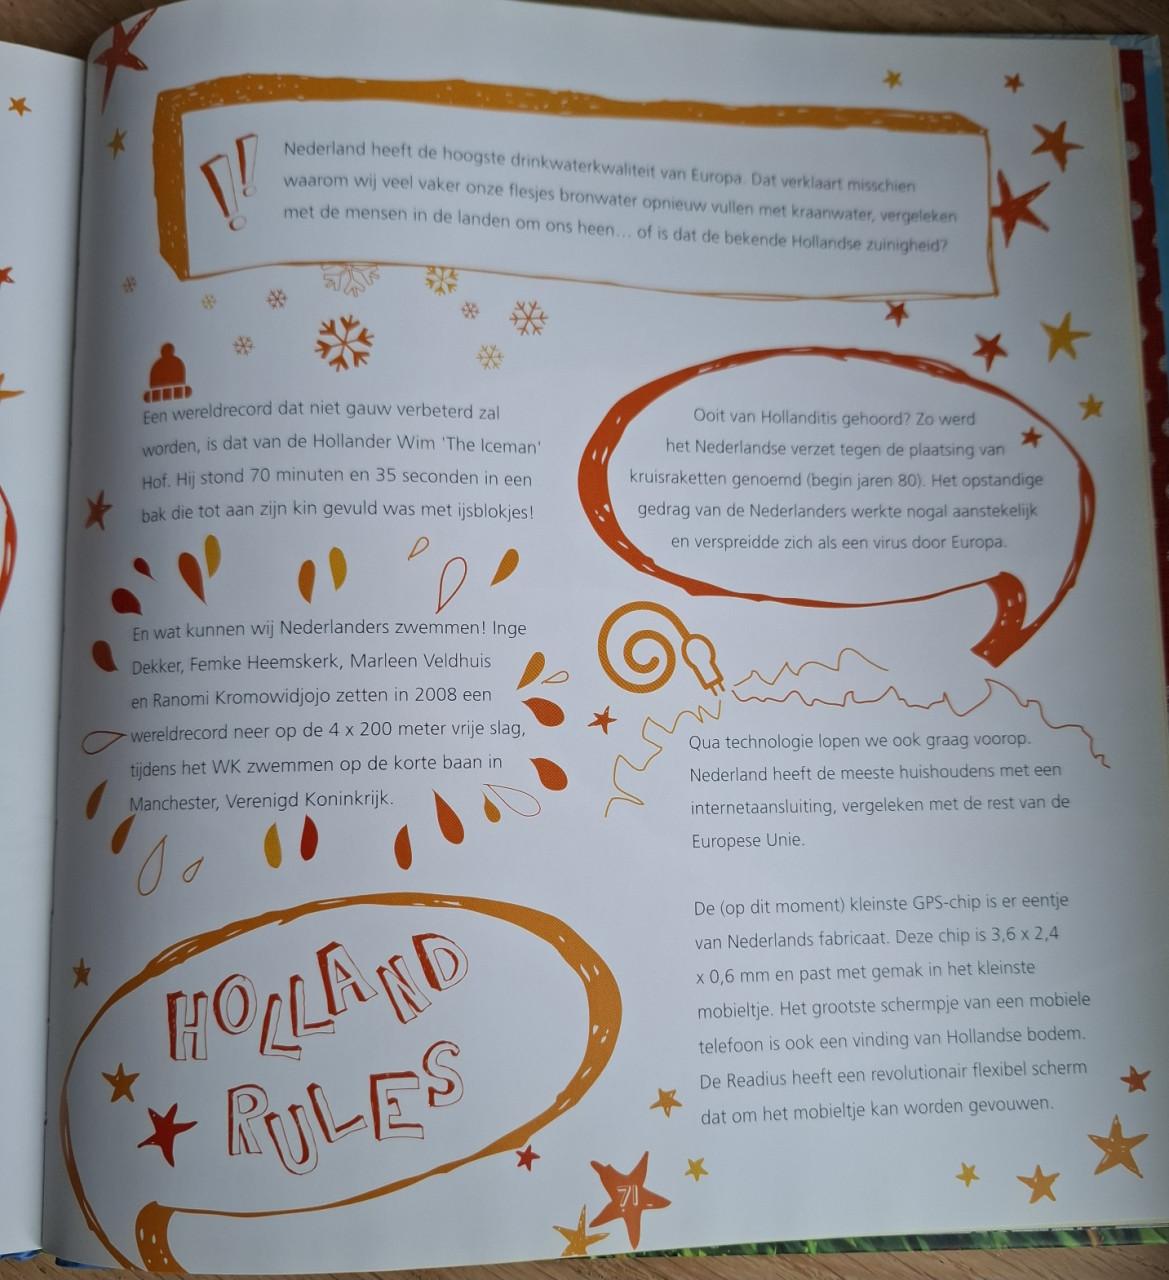 Nederland heeft de hoogste drinkwaterkwaliteit van Europa. Dat verklaart misschien
waarom wij veel vaker onze flesjes bronwater opnieuw vullen met kraanwater, vergeleken
met de mensen in de landen om ons heen... of is dat de bekende Hollandse zuinigheid?
Een wereldrecord dat niet gauw verbeterd zal
worden, is dat van de Hollander Wim 'The Iceman'
Hof. Hij stond 70 minuten en 35 seconden in een
bak die tot aan zijn kin gevuld was met ijsblokjes!
Ooit van Hollanditis gehoord? Zo werd
het Nederlandse verzet tegen de plaatsing van
kruisraketten genoemd (begin jaren 80). Het opstandige
gedrag van de Nederlanders werkte nogal aanstekelijk
en verspreidde zich als een virus door Europa.
En wat kunnen wij Nederlanders zwemmen! Inge
Dekker, Femke Heemskerk, Marleen Veldhuis
en Ranomi Kromowidjojo zetten in 2008 een
wereldrecord neer op de 4 x 200 meter vrije slag,
tijdens het WK zwemmen op de korte baan in
Manchester, Verenigd Koninkrijk.
Qua technologie lopen we ook graag voorop.
Nederland heeft de meeste huishoudens met een
internetaansluiting, vergeleken met de rest van de
Europese Unie.
De (op dit moment) kleinste GPS-chip is er eentje
van Nederlands fabricaat. Deze chip is 3,6 x 2,4
x 0,6 mm en past met gemak in het kleinste
mobieltje. Het grootste schermpje van een mobiele
telefoon is ook een vinding van Hollandse bodem.
De Readius heeft een revolutionair flexibel scherm
dat om het mobieltje kan worden gevouwen.
HOLLAND
RULES
71